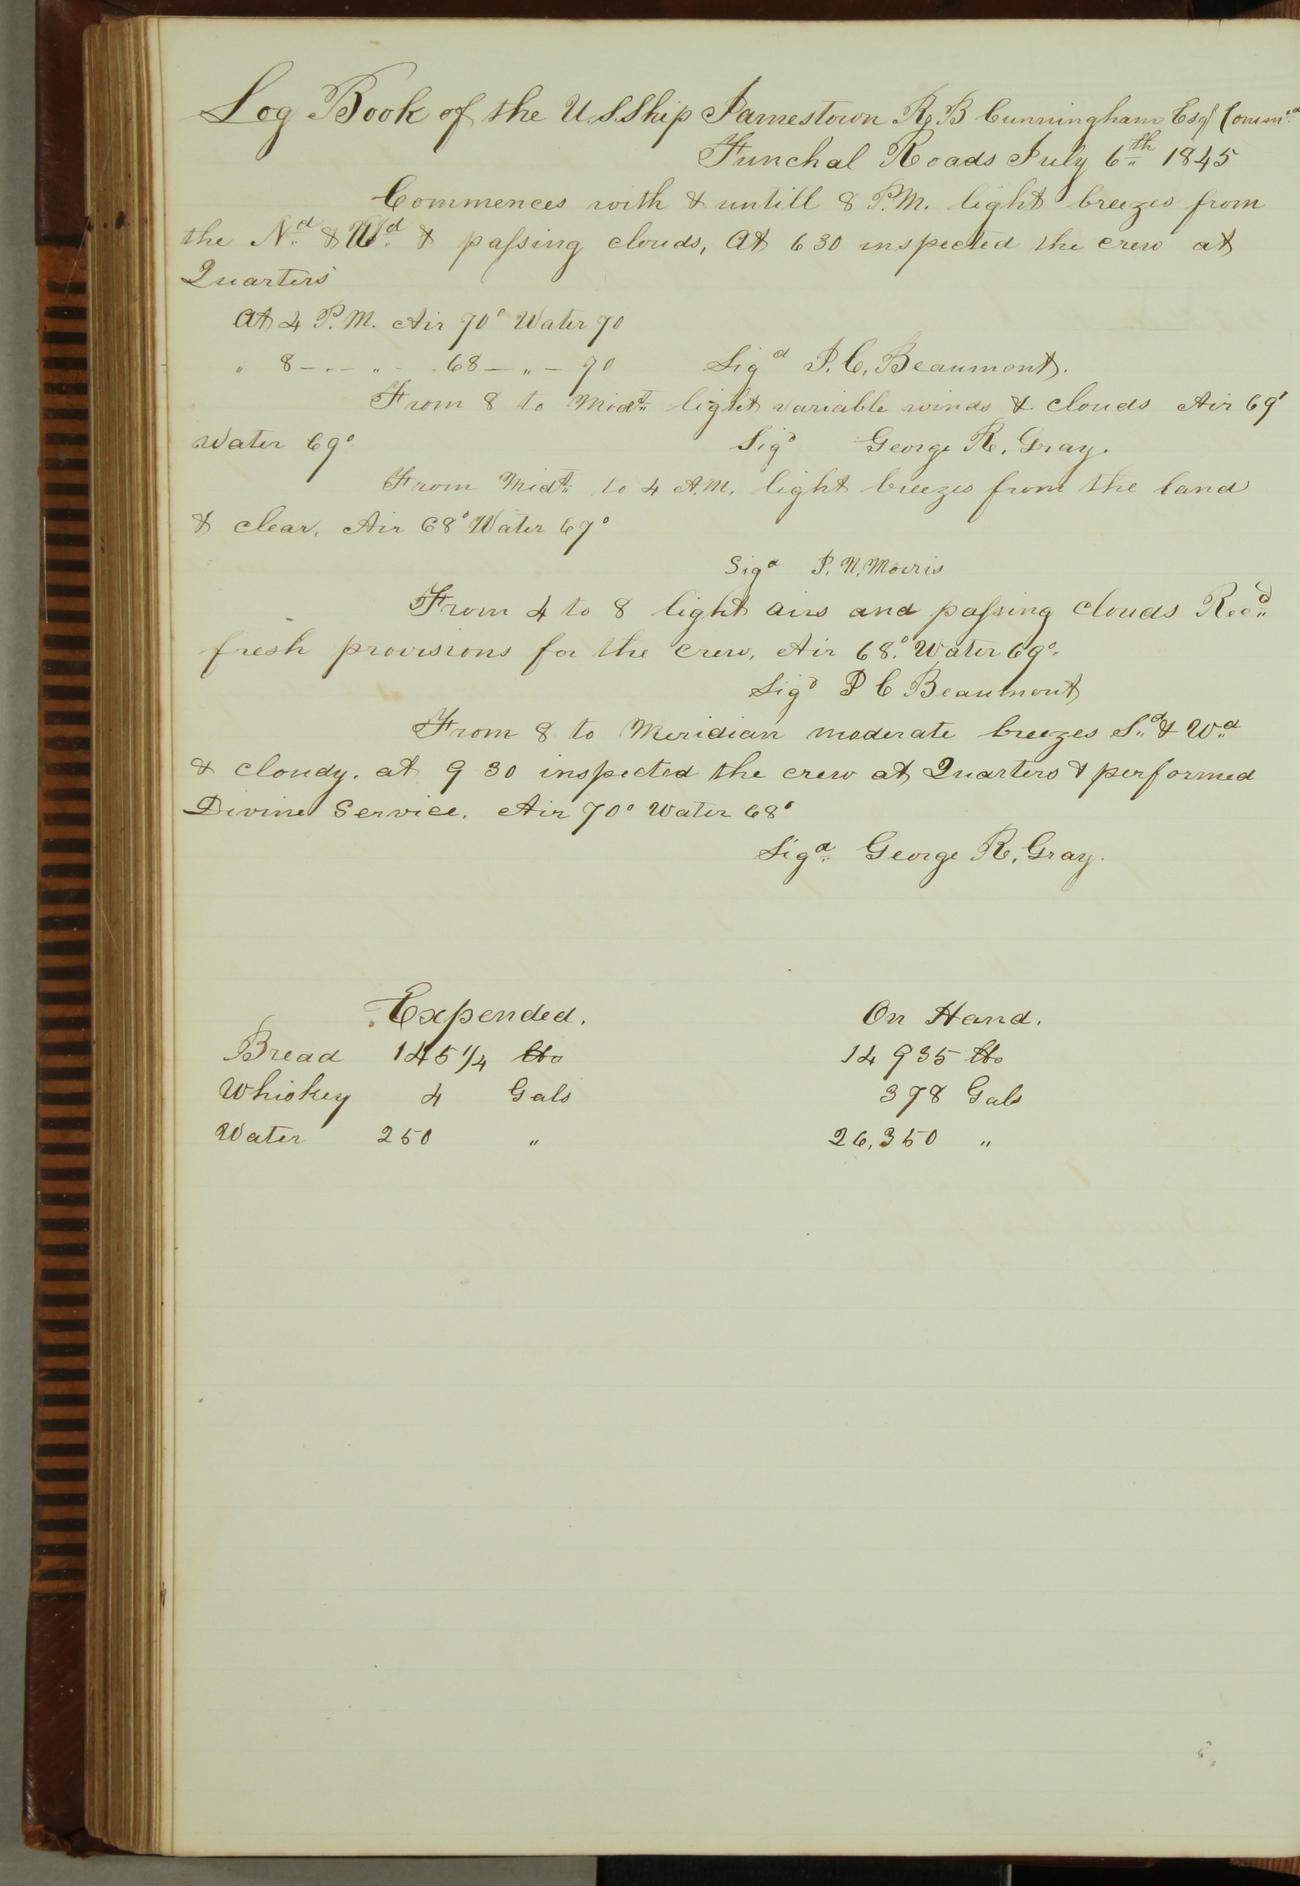 Log Book of the U.S. Ship Jamestown R B Cunningham Esqr Commd
Funchal Roads July 6th 1845
Commences with & untill 8 P.M. light breezes from
the Nd & Wd & passing clouds, At 6 30 inspected the crew at
Quarters
At 4 P.M. Air 70° Water 70
" 8 – " – " – 68 – " – 70 Sigd J. C. Beaumont.
From 8 to Midt light variable winds & clouds Air 69°
Water 69° Sigd George R. Gray.
From Midt to 4 A.M. light breezes from the land
& clear. Air 68° Water 69°
Sigd J. N. Morris
From 4 to 8 light airs and passing clouds Recd
fresh provisions for the crew. Air 68° Water 69°.
Sigd J C Beaumont
From 8 to Meridian moderate breezes Sd & Wd
& cloudy. at 9 30 inspected the crew at Quarters & performed
Divine Service. Air 70° Water 68°
Sigd George R. Gray.
Expended. On Hand.
Bread 145 1/4 lbs 14 935 lbs
Whiskey 4 Gals 378 Gals
Water 250 " 26,350 "